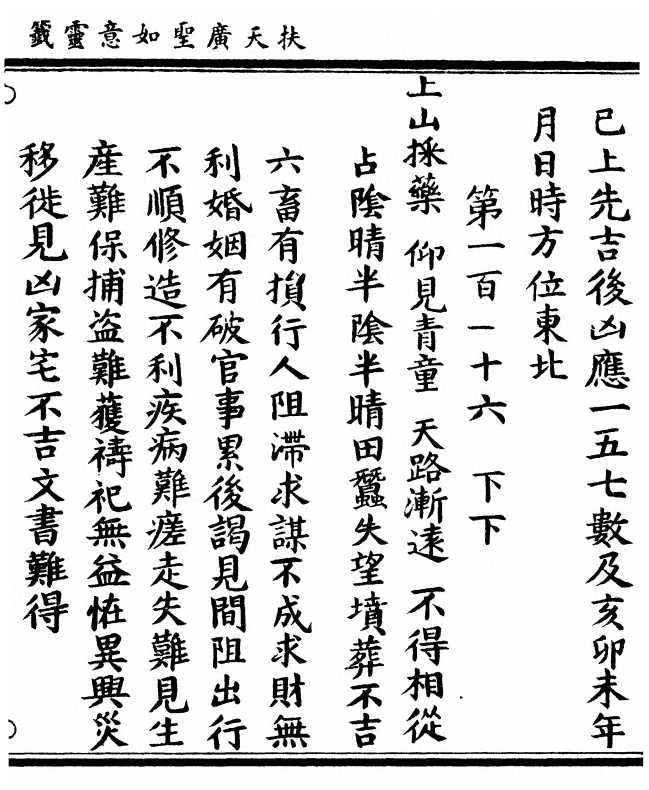 扶天廣聖如意靈籤
已上先吉後凶應一五七數及亥卯未年
月日時方位東北
第一百一十六 下下
上山採藥 仰見青童 天路漸遠 不得相從
占陰晴半陰半晴田蠶失望墳葬不吉
六畜有損行人阻滯求謀不成求財無
利婚姻有破官事累後謁見間阻出行
不順修造不利疾病難瘥走失難見生
產難保捕盜難獲禱祀無益恠異興災
移徙見凶家宅不吉文書難得